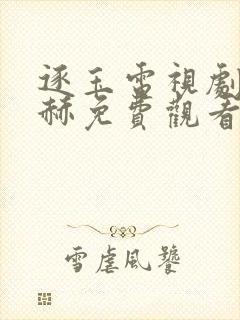 逐玉雷視劇
赫免費觀看
雪虐風饕